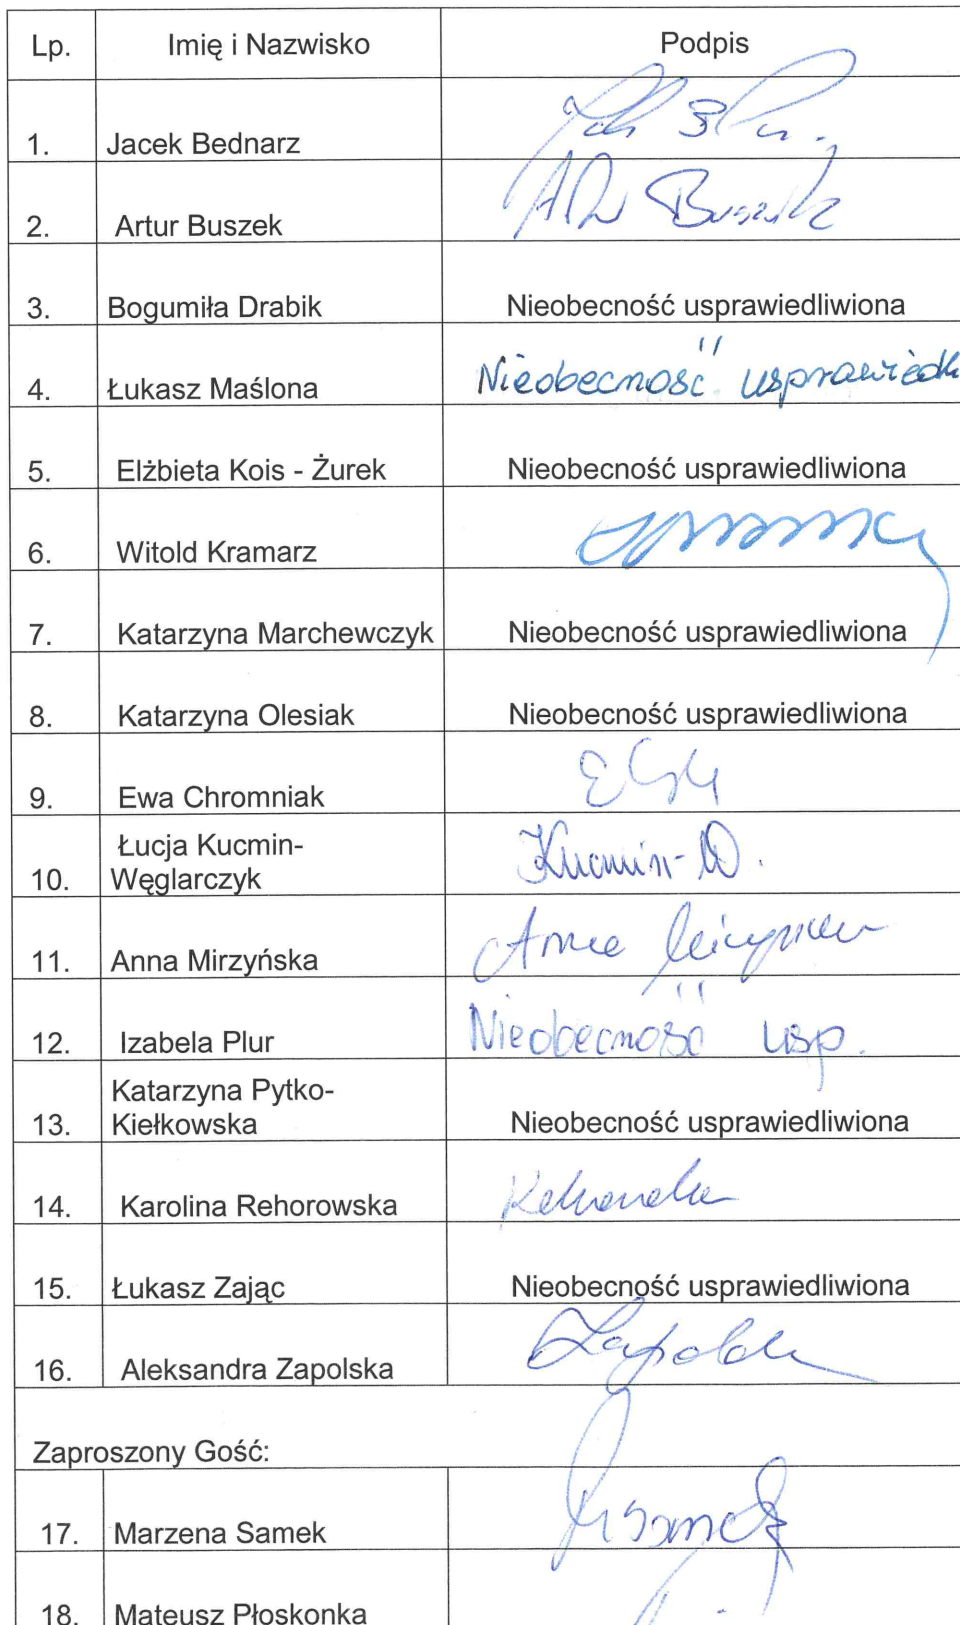 Lp. Imię i Nazwisko Podpis
1. Jacek Bednarz
2. Artur Buszek A Buszek
3. Bogumiła Drabik Nieobecność usprawiedliwiona
4. Łukasz Maślona Nieobecność usprawiedli
5. Elżbieta Kois - Żurek Nieobecność usprawiedliwiona
6. Witold Kramarz
7. Katarzyna Marchewczyk Nieobecność usprawiedliwiona
8. Katarzyna Olesiak Nieobecność usprawiedliwiona
9. Ewa Chromniak
Łucja Kucmin-
10. Węglarczyk Kucmin-W.
11. Anna Mirzyńska
12. Izabela Plur Nieobecność usp.
Katarzyna Pytko-
13. Kiełkowska Nieobecność usprawiedliwiona
14. Karolina Rehorowska
15. Łukasz Zając Nieobecność usprawiedliwiona
16. Aleksandra Zapolska
Zaproszony Gość:
17. Marzena Samek
18. Mateusz Płoskonka